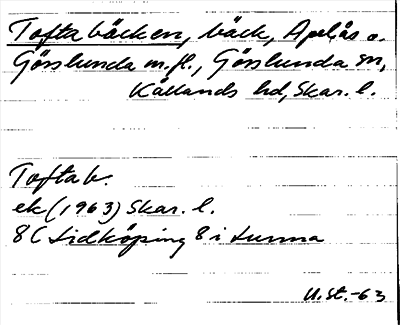 Toftabäcken, bäck, Apelås o.
Gösslunda m.fl., Gösslunda sn,
Kållands hd, Skar. l.
Toftab.
ek (1963) Skar. l.
8C Lidköping 8 i Lunna
U.St.-63